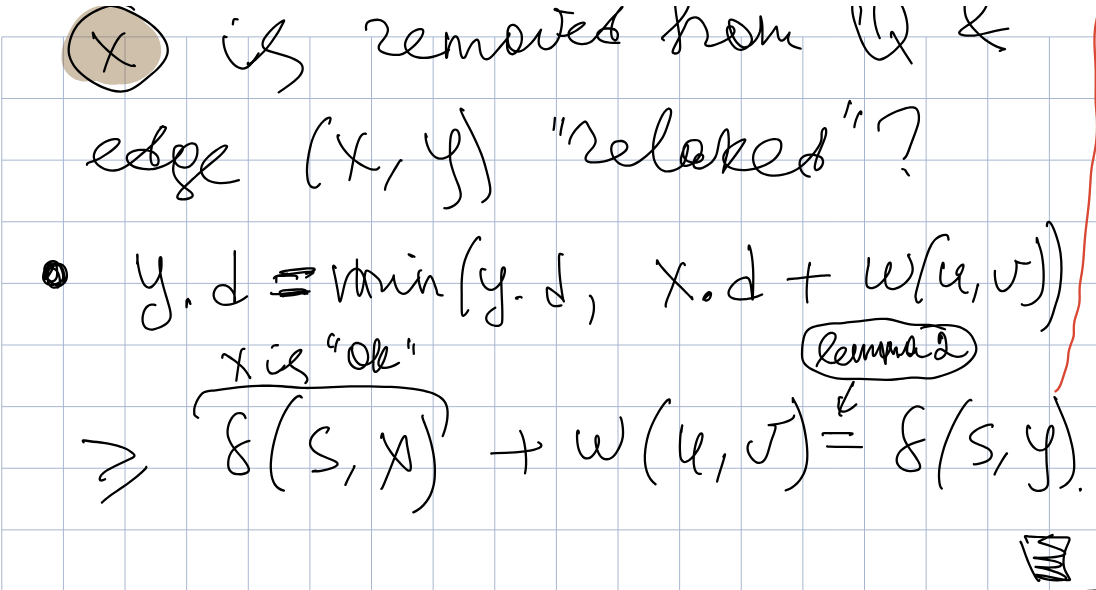 x is removed from Q &
edge (x, y) "relaxed"?
• y.d = min(y.d, x.d + w(u,v))
x is "ok" lemma 2
≥ δ(s, x) + w(u, v) = δ(s, y).